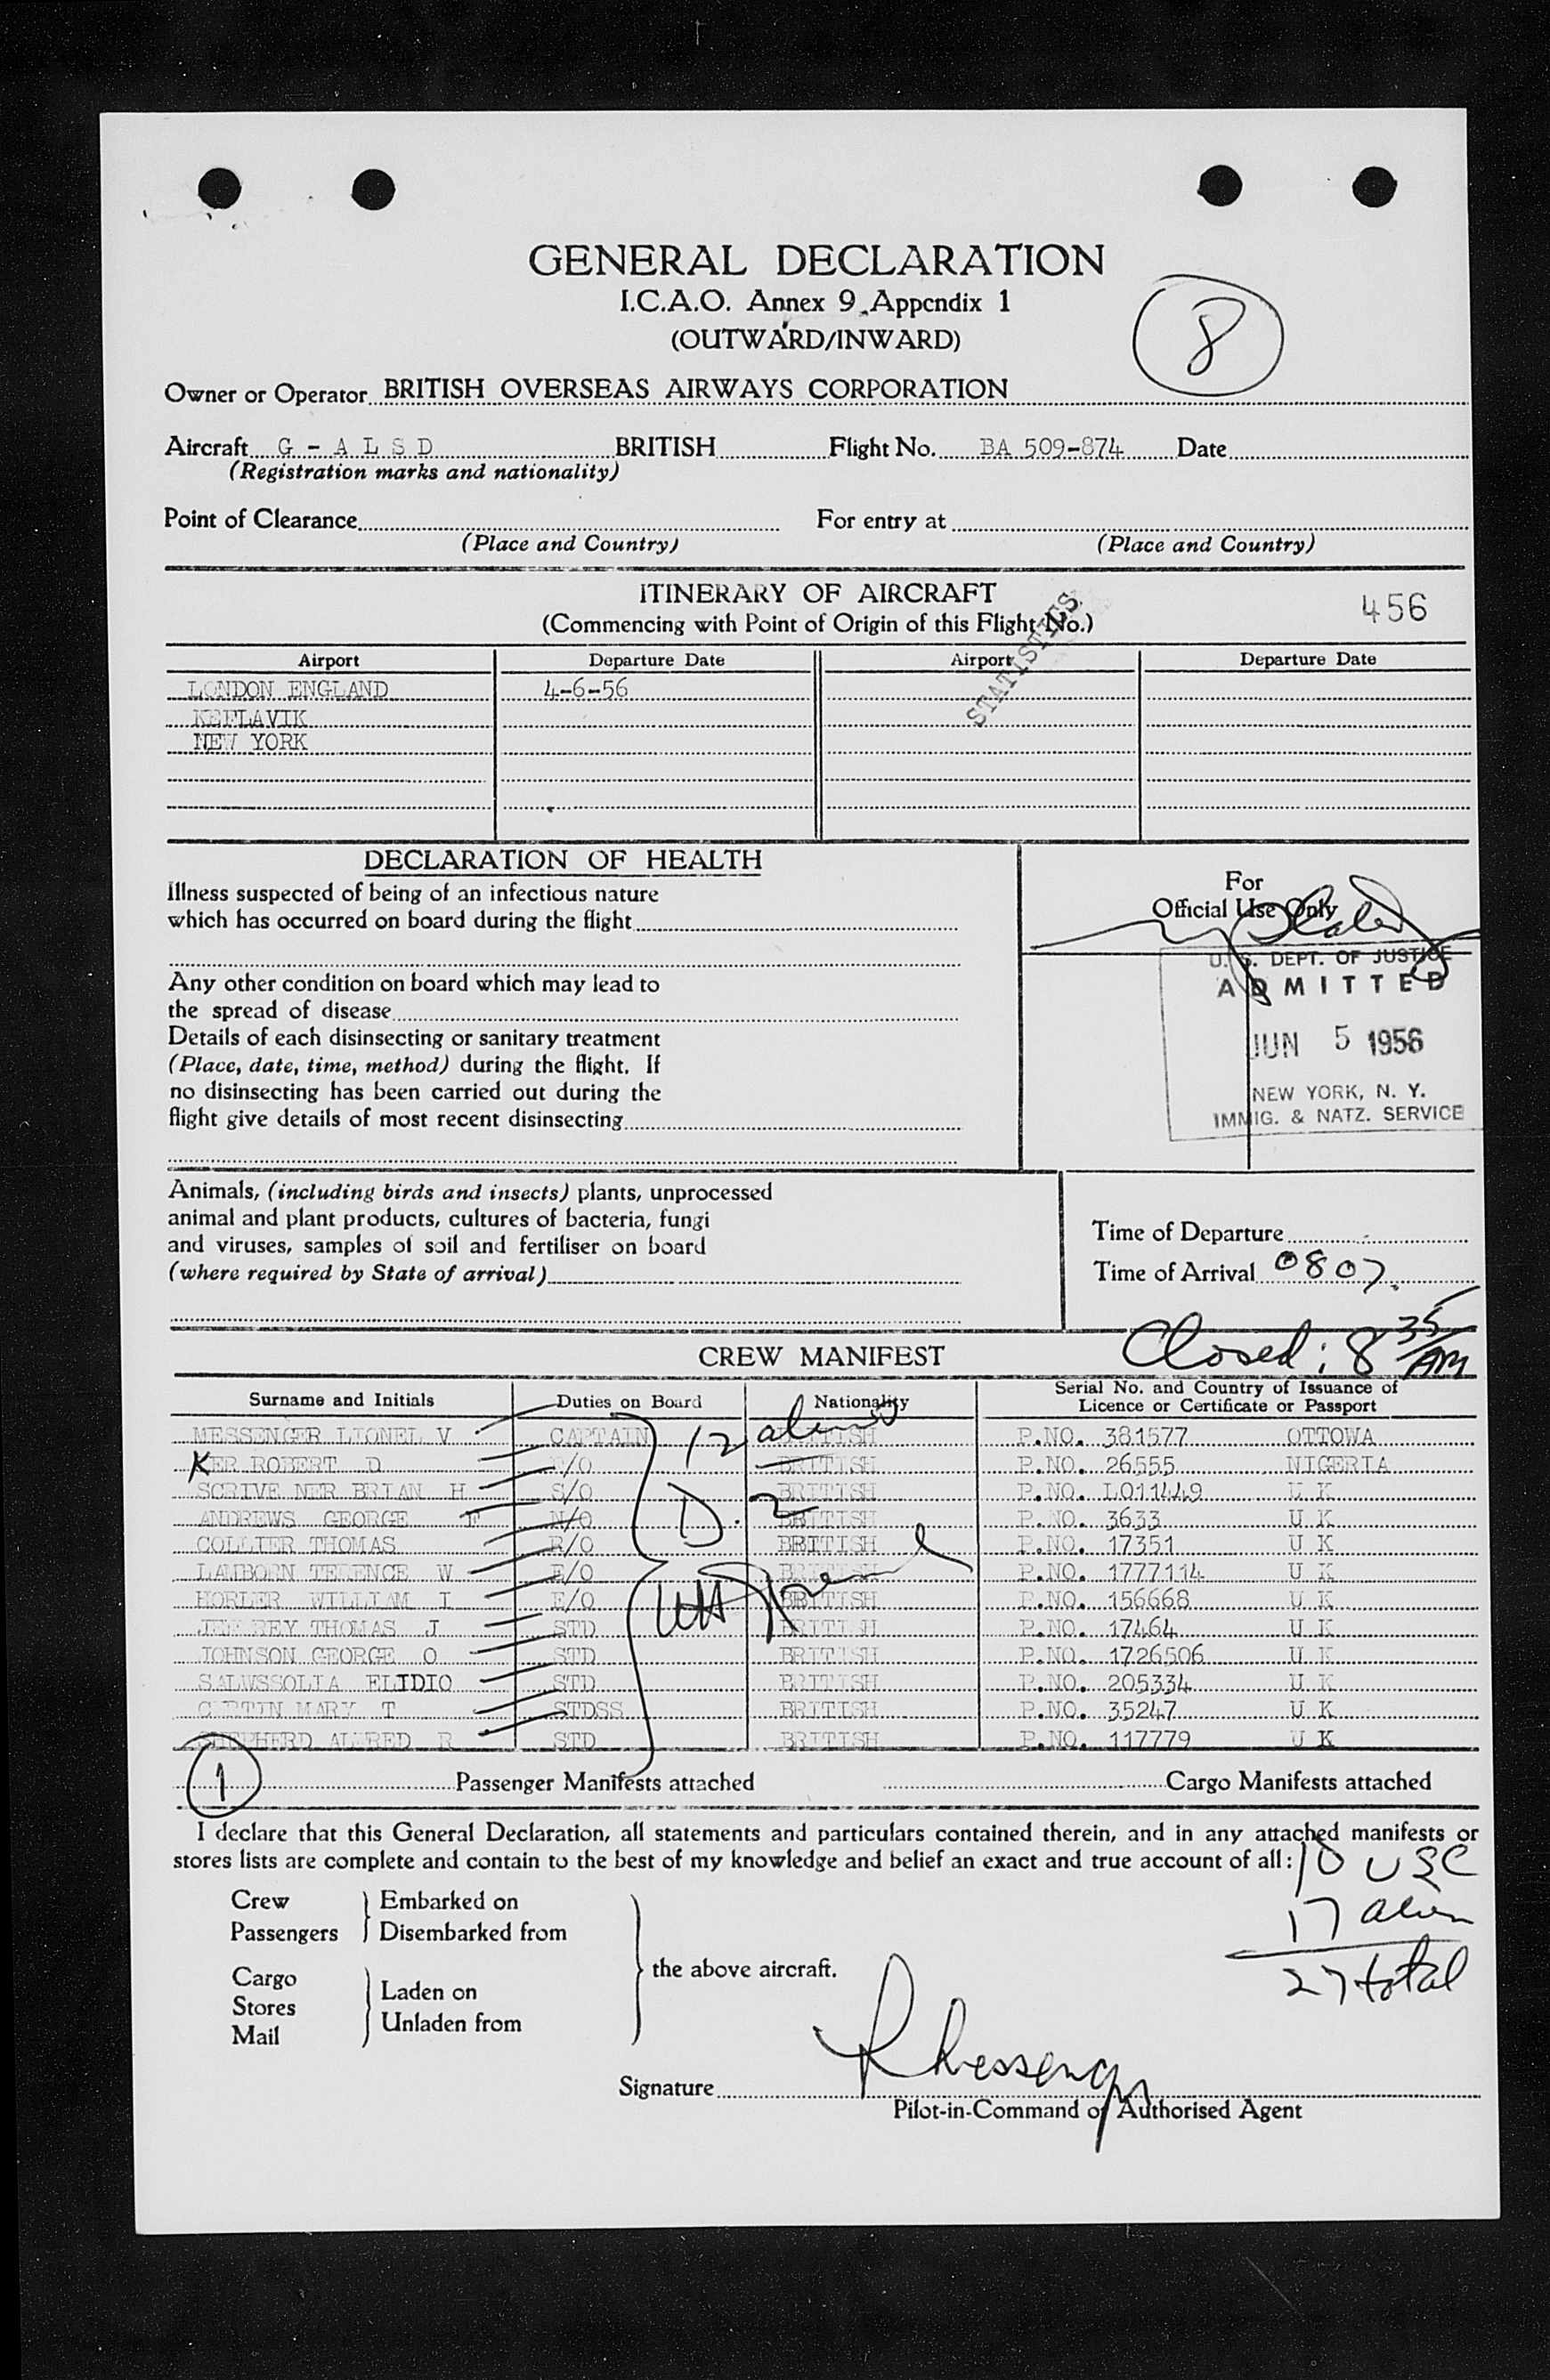 GENERAL DECLARATION
I.C.A.O. Annex 9, Appendix 1
(OUTWARD/INWARD)
8
Owner or Operator BRITISH OVERSEAS AIRWAYS CORPORATION
Aircraft G - A L S D BRITISH Flight No. BA 509-874 Date
(Registration marks and nationality)
Point of Clearance For entry at
(Place and Country) (Place and Country)
ITINERARY OF AIRCRAFT
(Commencing with Point of Origin of this Flight No.)
456
STATISTICS
Airport Departure Date Airport Departure Date
LONDON ENGLAND 4-6-56
KEFLAVIK
NEW YORK
DECLARATION OF HEALTH
Illness suspected of being of an infectious nature
which has occurred on board during the flight
Any other condition on board which may lead to
the spread of disease
Details of each disinsecting or sanitary treatment
(Place, date, time, method) during the flight. If
no disinsecting has been carried out during the
flight give details of most recent disinsecting
For
Official Use Only
U. S. DEPT. OF JUSTICE
ADMITTED
JUN 5 1956
NEW YORK, N. Y.
IMMIG. & NATZ. SERVICE
Animals, (including birds and insects) plants, unprocessed
animal and plant products, cultures of bacteria, fungi
and viruses, samples of soil and fertiliser on board
(where required by State of arrival)
Time of Departure
Time of Arrival 0807.
Closed: 8 35 AM
CREW MANIFEST
Surname and Initials Duties on Board Nationality Serial No. and Country of Issuance of
Licence or Certificate or Passport
MESSENGER LIONEL V CAPTAIN BRITISH P.NO. 381577 OTTOWA
KER ROBERT D F/O BRITISH P.NO. 26555 NIGERIA
SCRIVE NER BRIAN H S/O BRITISH P.NO. L011449 U K
ANDREWS GEORGE F N/O BRITISH P.NO. 3633 U K
COLLIER THOMAS R/O BRITISH P.NO. 17351 U K
LAMBORN TERENCE W E/O BRITISH P.NO. 1777114 U K
HORLER WILLIAM I E/O BRITISH P.NO. 156668 U K
JEFFREY THOMAS J STD BRITISH P.NO. 17464 U K
JOHNSON GEORGE O STD BRITISH P.NO. 1726506 U K
ELIDIO STD BRITISH P.NO. 205334 U K
MARY T STDSS BRITISH P.NO. 35247 U K
SHEPHERD ALFRED R STD BRITISH P.NO. 117779 U K
12 aliens
D. 2
1 Passenger Manifests attached Cargo Manifests attached
I declare that this General Declaration, all statements and particulars contained therein, and in any attached manifests or
stores lists are complete and contain to the best of my knowledge and belief an exact and true account of all:
10 USC
17 alien
27 total
Crew Embarked on
Passengers Disembarked from
the above aircraft.
Cargo Laden on
Stores
Mail Unladen from
Signature
Pilot-in-Command or Authorised Agent